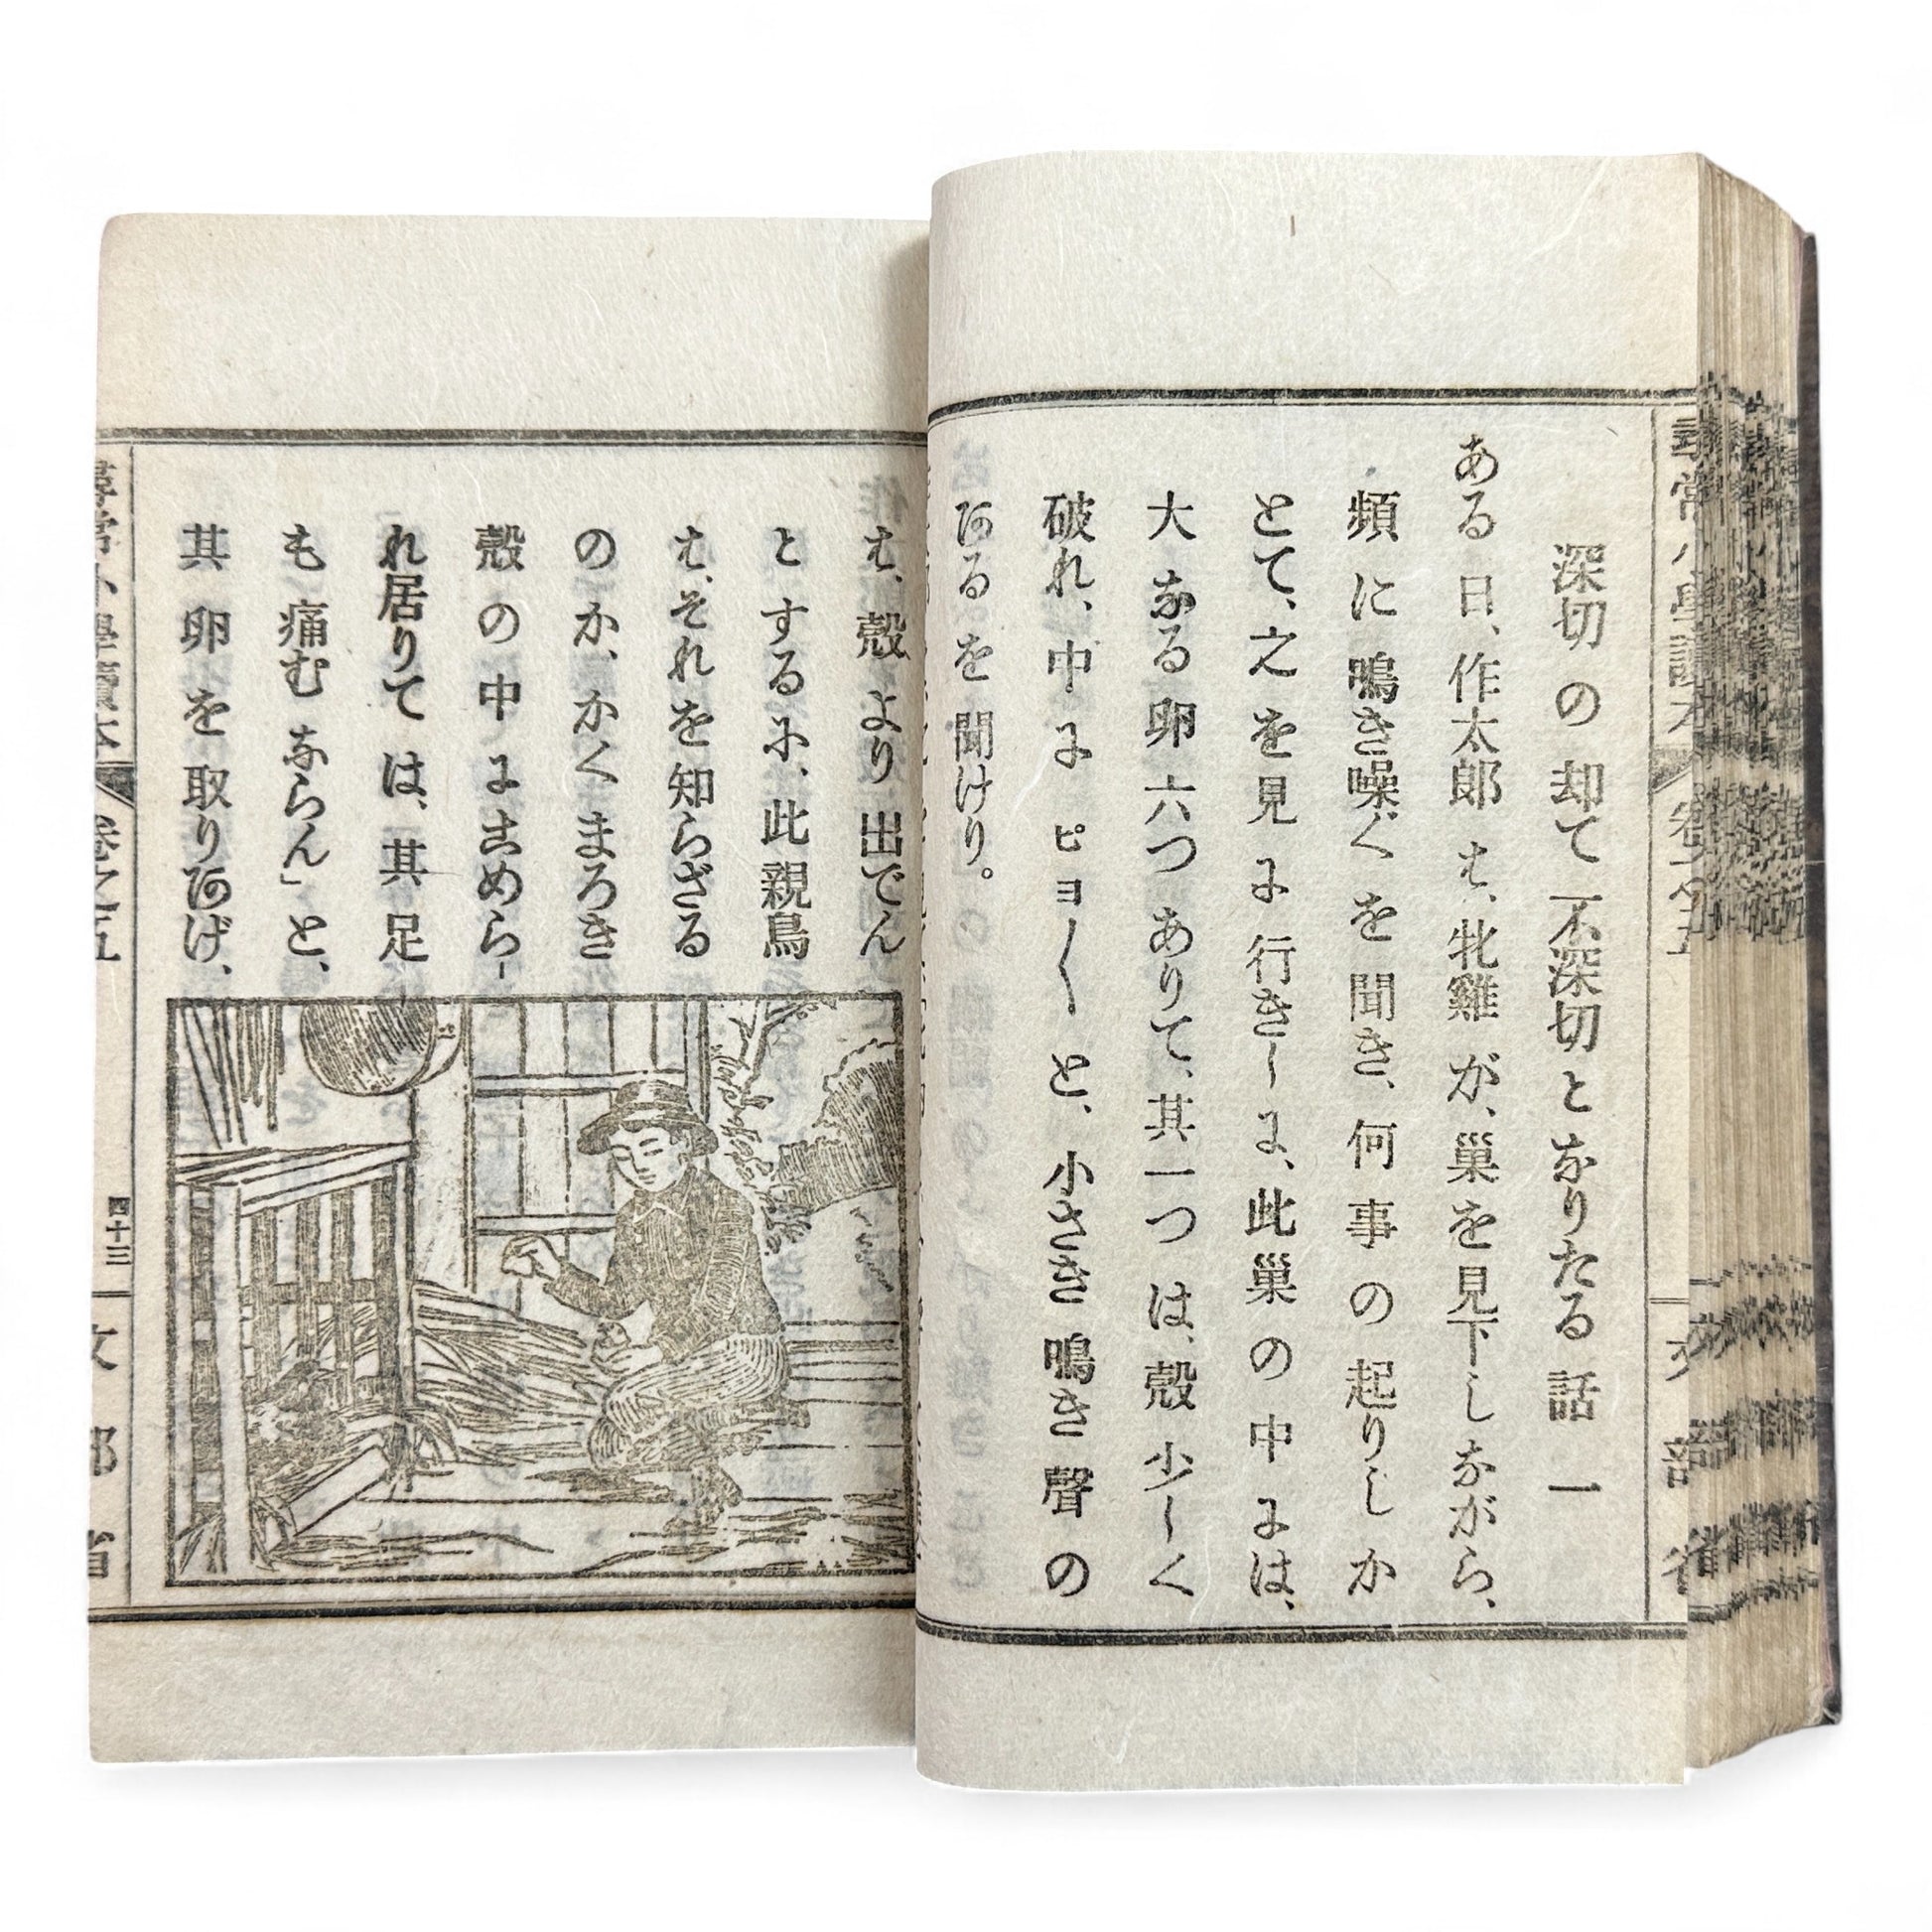 尋常小學讀本 卷之五 文部省
深切の却て不深切となりたる話 一
ある日、作太郎は、牝雞が、巢を見下しながら、
頻に鳴き噪ぐを聞き、何事の起りしか
とて、之を見に行きしに、此巢の中には、
大なる卵六つありて、其一つは、殼少しく
破れ、中にピヨ〳〵と、小さき鳴き聲の
あるを聞けり。
は、殼より出でん
とするに、此親鳥
は、それを知らざる
のか、かくまろき
殼の中にこめら
れ居りては、其足
も痛むならん」と、
其卵を取りあげ、
尋常小學讀本 卷之五 四十三 文部省